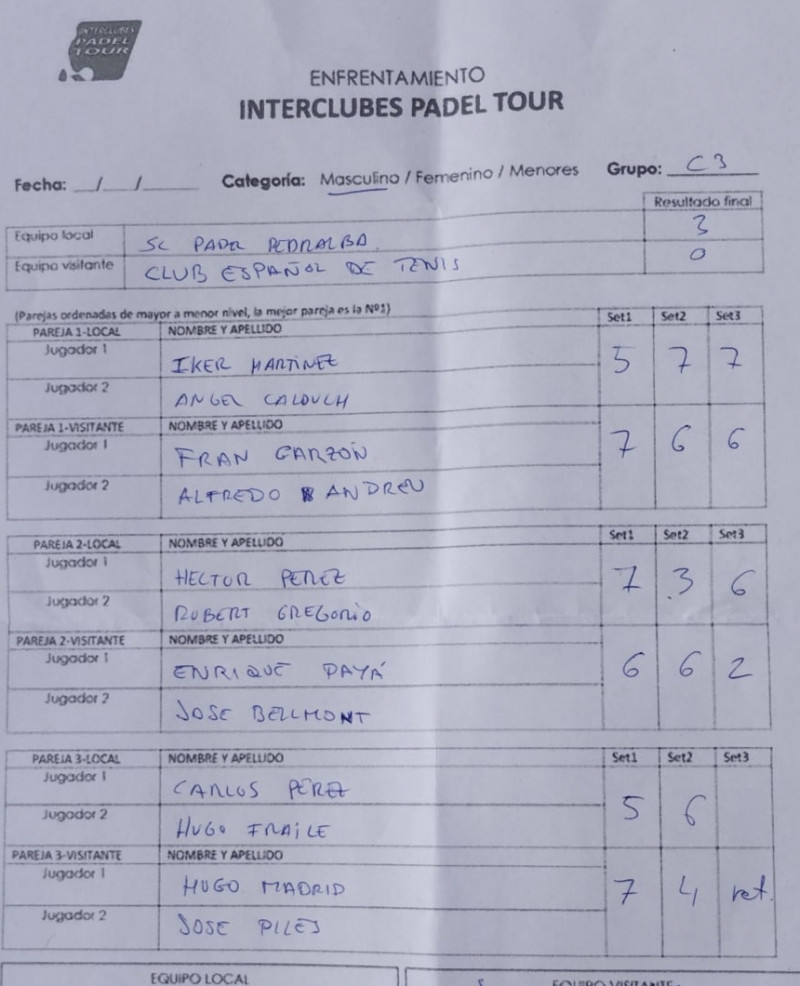 INTERCLUBES
PADEL
TOUR
ENFRENTAMIENTO
INTERCLUBES PADEL TOUR
Fecha: __/__/____ Categoría: Masculino / Femenino / Menores Grupo: C3
Resultado final
Equipo local SC PADEL PEDRALBA 3
Equipo visitante CLUB ESPAÑOL DE TENIS 0
(Parejas ordenadas de mayor a menor nivel, la mejor pareja es la Nº1) Set1 Set2 Set3
PAREJA 1-LOCAL NOMBRE Y APELLIDO
Jugador 1 IKER MARTINEZ 5 7 7
Jugador 2 ANGEL CALDUCH
PAREJA 1-VISITANTE NOMBRE Y APELLIDO
Jugador 1 FRAN GARZÓN 7 6 6
Jugador 2 ALFREDO ANDREU
PAREJA 2-LOCAL NOMBRE Y APELLIDO Set1 Set2 Set3
Jugador 1 HECTOR PEREZ 7 3 6
Jugador 2 ROBERT GREGORIO
PAREJA 2-VISITANTE NOMBRE Y APELLIDO
Jugador 1 ENRIQUE PAYÁ 6 6 2
Jugador 2 JOSE BELLMONT
PAREJA 3-LOCAL NOMBRE Y APELLIDO Set1 Set2 Set3
Jugador 1 CARLOS PÉREZ 5 6
Jugador 2 HUGO FRAILE
PAREJA 3-VISITANTE NOMBRE Y APELLIDO
Jugador 1 HUGO MADRID 7 4 ret.
Jugador 2 JOSE PILES
EQUIPO LOCAL EQUIPO VISITANTE